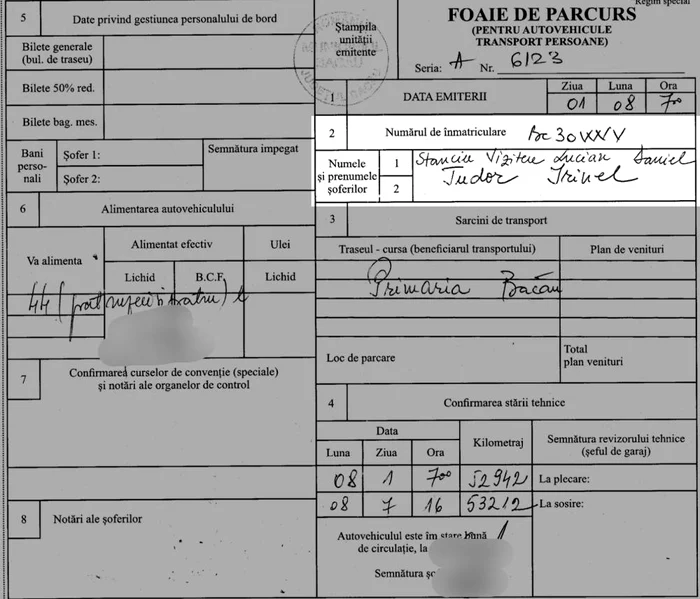 Regim special
5 Date privind gestiunea personalului de bord
Bilete generale
(bul. de traseu)
Bilete 50% red.
Bilete bag. mes.
Bani personali
Șofer 1:
Șofer 2:
Semnătura impegat
Ștampila
unității
emitente
FOAIE DE PARCURS
(PENTRU AUTOVEHICULE
TRANSPORT PERSOANE)
Seria: A Nr. 6123
1 DATA EMITERII
Ziua Luna Ora
01 08 7⁰⁰
2 Numărul de înmatriculare Bc 30 VXV
Numele
și prenumele
șoferilor
1 Stanciu Viziteu Lucian Daniel
2 Tudor Irinel
6 Alimentarea autovehiculului
Va alimenta
Alimentat efectiv
Ulei
Lichid B.C.F. Lichid
44
3 Sarcini de transport
Traseul - cursa (beneficiarul transportului) Plan de venituri
Primaria Bacău
Loc de parcare
Total
plan venituri
7 Confirmarea curselor de convenție (speciale)
și notări ale organelor de control
4 Confirmarea stării tehnice
Data
Luna Ziua Ora
Kilometraj
Semnătura revizorului tehnice
(șeful de garaj)
08 1 7⁰⁰ 52942 La plecare:
08 7 16 53212 La sosire:
8 Notări ale șoferilor
Autovehiculul este îm stare bună
de circulație, la
Semnătura